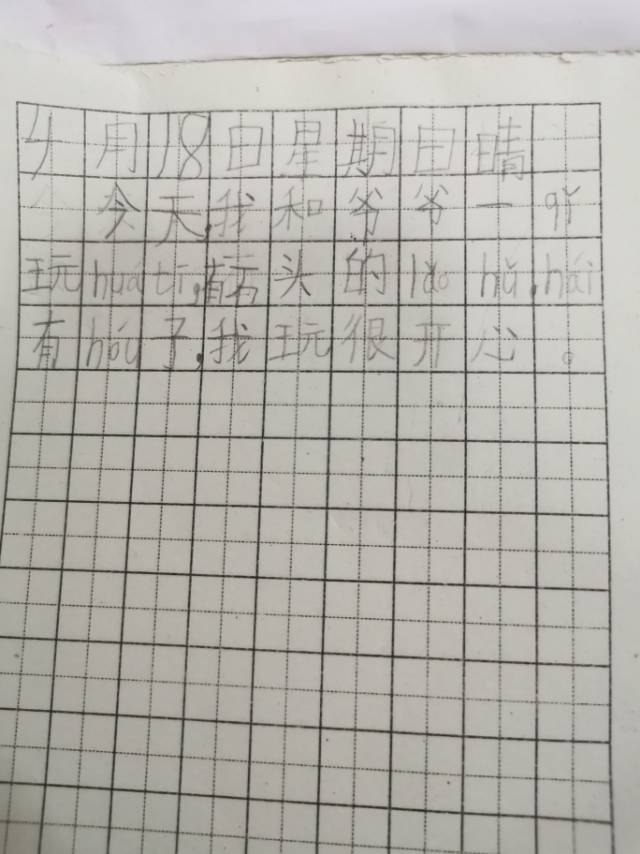 4月18日星期日晴
今天,我和爷爷一qǐ
玩huá tī,有石头的lǎo hǔ,hái
有hóu子,我玩很开心。